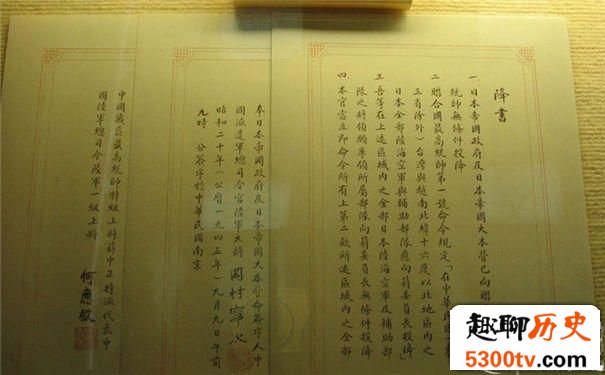 降書
一 日本帝國政府及日本帝國大本營已向聯
統帥無條件投降
二 聯合國最高統帥第一號命令規定「在中華民國(東
三省除外)台灣與越南北緯十六度以北地區內之
日本全部陸海空軍與輔助部隊應向蔣委員長投降」
三 吾等在上述區域內之全部日本陸海空軍及輔助部
隊之將領願率領所屬部隊向蔣委員長無條件投降
四 本官當立即命令所有上第二款所述區域內之全部
奉日本帝國政府及日本帝國大本營命簽字人中
國派遣軍總司令官陸軍大將 岡村寧次
昭和二十年(公曆一九四五年)九月九日午前
九時 分簽字於中華民國南京
中國戰區最高統帥特級上將蔣中正特派代表中
國陸軍總司令陸軍一級上將
何應欽
趣聊历史
5300tv.com